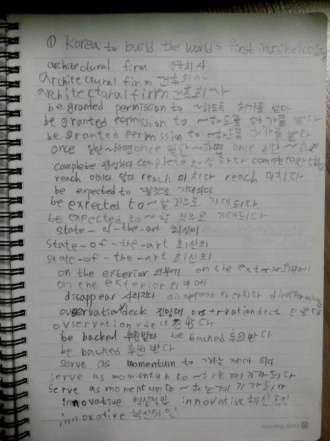 ① Korea to build the world's first invisible
architectural firm 건축회사
architectural firm 건축회사
architectural firm 건축회사
be granted permission to ~하도록 허가를 받다
be granted permission to ~하도록 허가를 받다
be granted permission to ~하도록 허가를 받다
once 일단~하면 once 일단 ~하면 once 일단 ~
complete 완성하다 complete 완성하다 complete
reach 이르다 reach 미치다 reach 미치다
be expected to ~할것으로 기대되다
be expected to ~할 것으로 기대되다
be expected to ~할 것으로 기대되다
state-of-the-art 최신의
state-of-the-art 최신의
state-of-the-art 최신의
on the exterior 외부에 on the exterior 외부에
on the exterior 외부에
disappear 사라지다 disappear 사라지다
observation deck 전망대
be backed 후원받다 be backed 후원받다
be backed 후원받다
serve as momentum to ~하는 계기가 되다
serve as momentum to ~하는 계기가 되다
serve as momentum to ~하는 계기가 되다
innovative 혁신적인 innovative 혁신적인
innovative 혁신적인